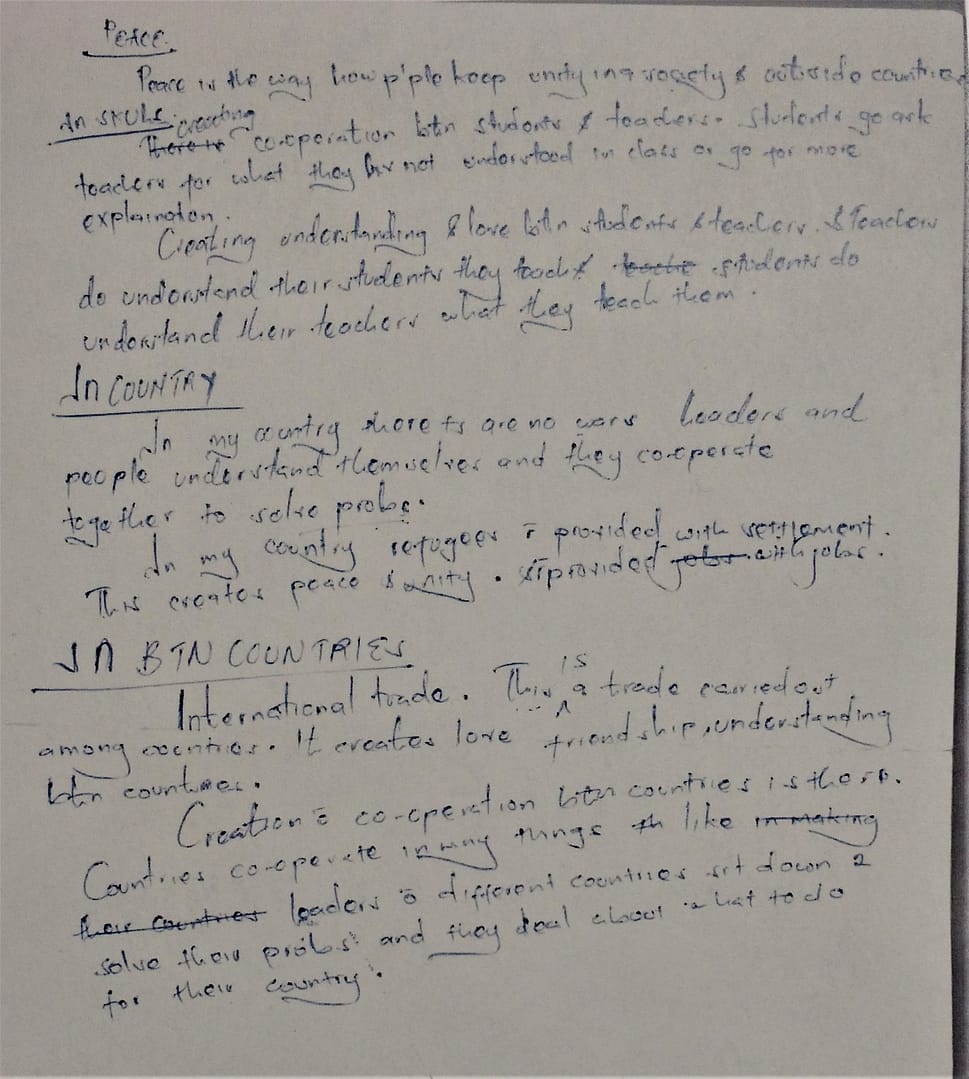 PEACE.
Peace is the way how p'ple keep unity in a society & outside countries
In SKULS.
There is creating co-operation btn students & teachers. Students go ask
teachers for what they hv not understood in class or go for more
explaination.
Creating understanding & love bt/n students & teachers. & Teachers
do understand their students they teach & teache students do
understand their teachers what they teach them.
In COUNTRY
In my country there is are no wars leaders and
people understand themselves and they co-operate
together to solve probs.
In my country refugees r̄ provided with settlement.
This creates peace & unity. & r̄ provided jobs with jobs.
IN BTN COUNTRIES
International trade. This is a trade carried out
among countries. It creates love friendship, understanding
btn countries.
Creation ō co-operation bt/n countries is there.
Countries co-operate in many things th like in making
their countries leaders ō different countries sit down 2
solve their probs and they deal about what to do
for their country.